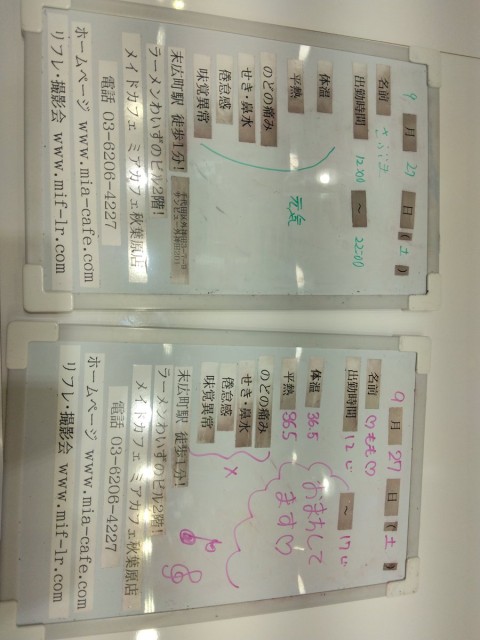 9月27日(土)
名前
出勤時間 12:00 ~ 22:00
体温
平熱
元気
のどの痛み
せき・鼻水
倦怠感
味覚異常
末広町駅 徒歩1分!
ラーメンわいずのビル2階!
メイドカフェ ミアカフェ秋葉原店
電話 03-6206-4227
ホームページ www.mia-cafe.com
リフレ・撮影会 www.mif-lr.com
9月27日(土)
名前 ♡もも♡
出勤時間 12じ ~ 17じ
体温 36.5
平熱 36.5
おまちして
ます♡
のどの痛み
せき・鼻水
倦怠感 ×
味覚異常
末広町駅 徒歩1分!
ラーメンわいずのビル2階!
メイドカフェ ミアカフェ秋葉原店
電話 03-6206-4227
ホームページ www.mia-cafe.com
リフレ・撮影会 www.mif-lr.com